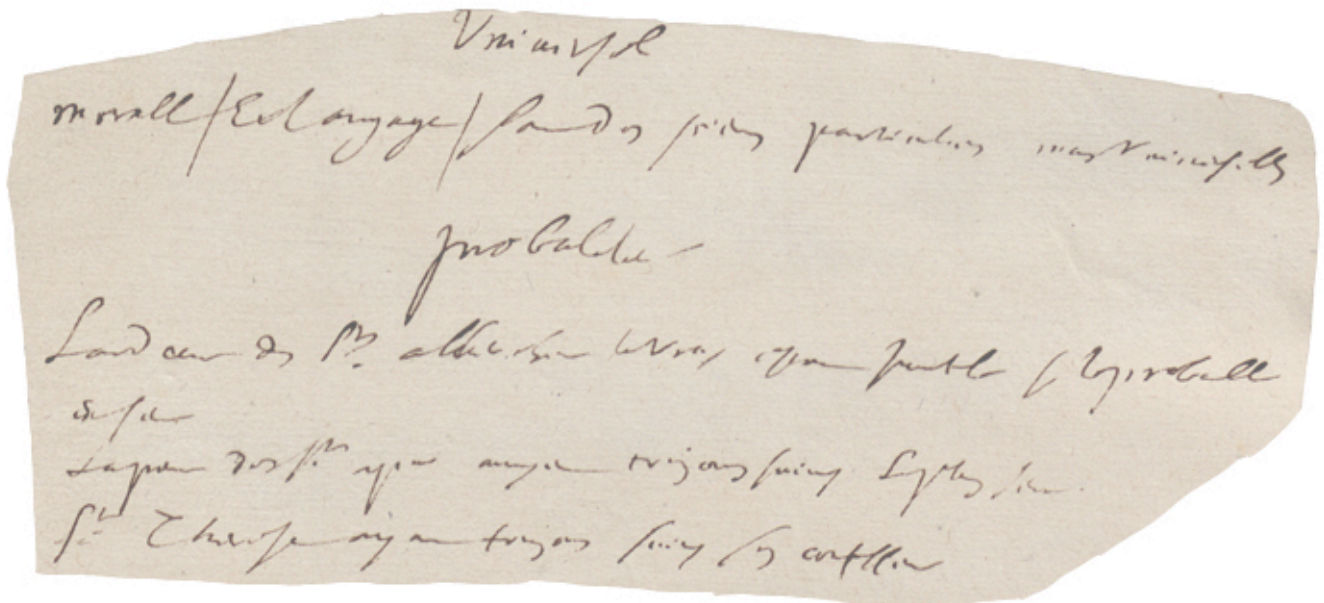 Vniuersel
moralle / Et Langage / sont des sciences particulieres mais Vniuerselles
probabilité
L'ardeur des Sts a chercher le vray estoit inutile si le probable
est seur
La peur des sts qui auoient tousiours suiuy le plus seur.
Ste Therese ayant tousiours suiuy son confesseur